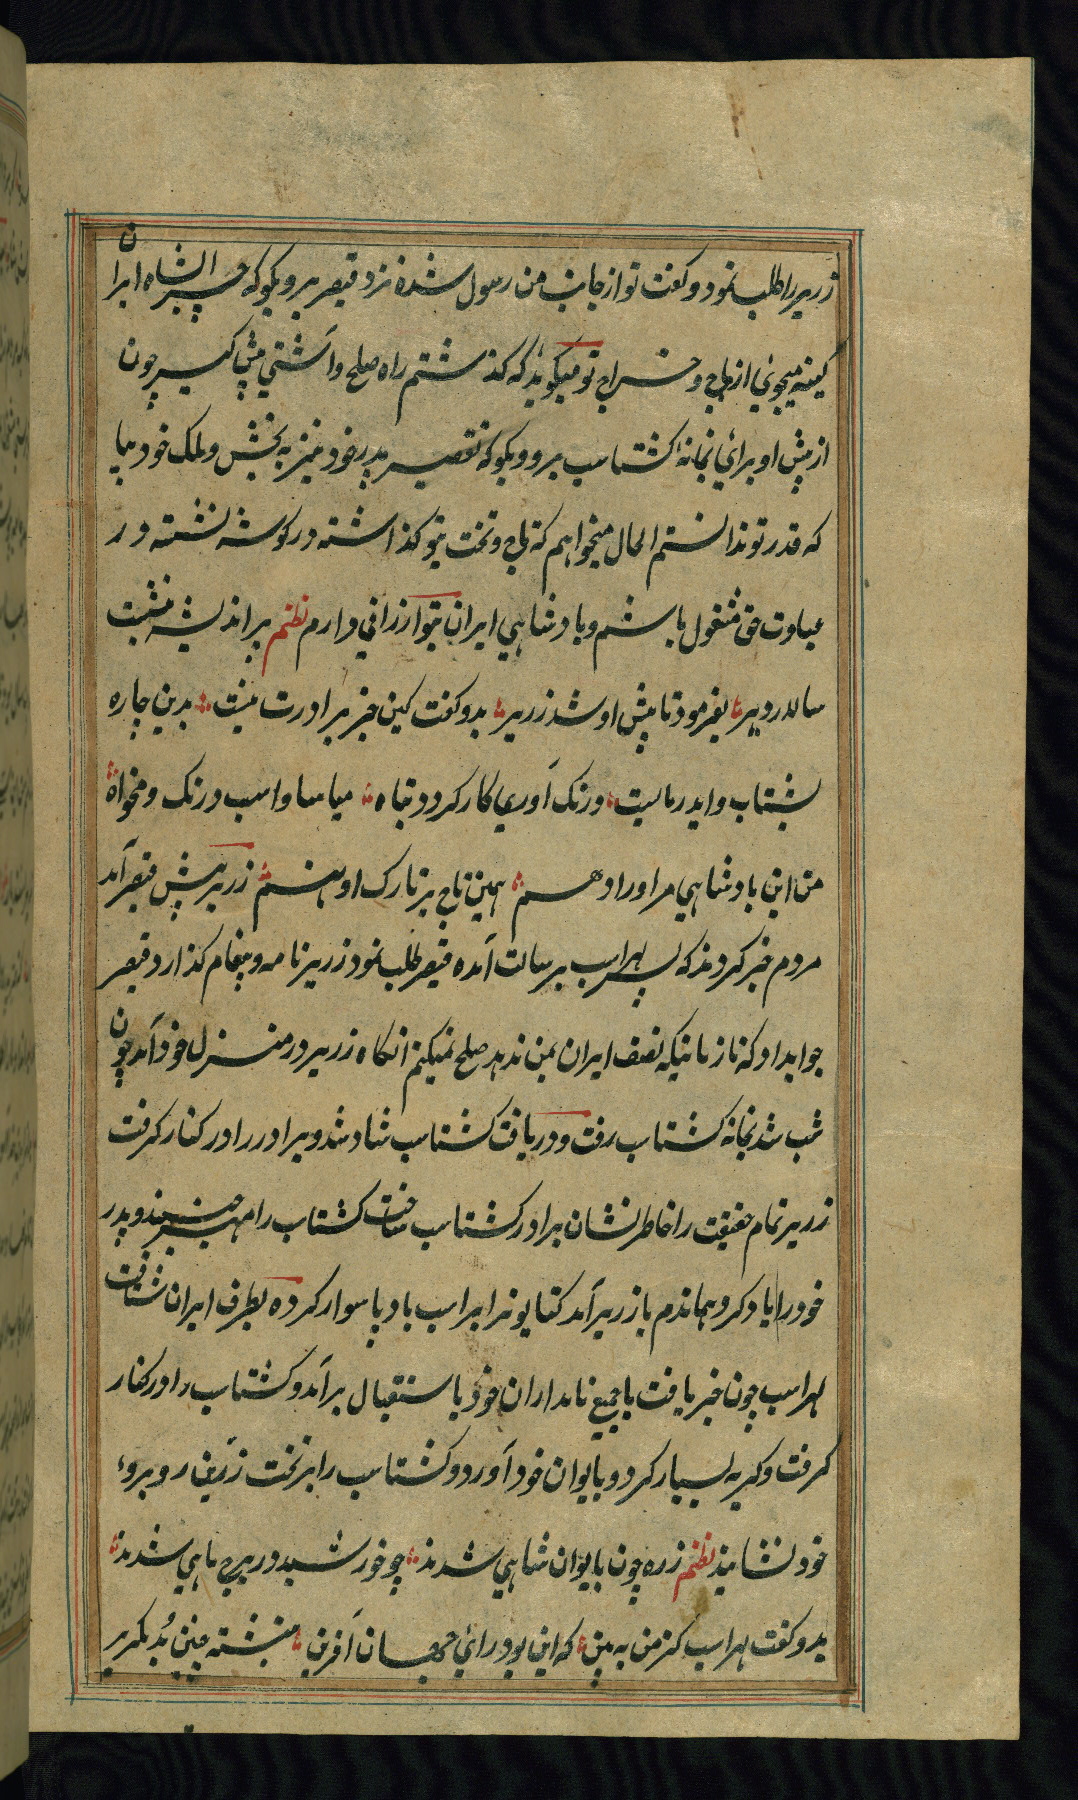 زریر را طلب نمود و کفت تو از جانب من رسول شده نزد قیصر برو بکو که چرا از شاه ایران
کینه میجوئی از باج و خراج تو میکوید که کذشتم راه صلح و آشتی پیش کیر چون
از پیش او برائی بخانهٔ کشتاسب برو و بکو که تقصیر پدر خود نیز به بخش و بملک خود بیا
که قدر تو ندانستم الحال میخواهم که تاج و تخت بتو کذاشته در کوشه نشسته در
عبادت حق مشغول باشم و بادشاهی ایران بتو ارزانی دارم نظم پر اندیشه بنشست
سالار دیر بفرمود تا پیش او شد زریر بدو کفت کین جز برادرت نیست بدین چاره
بشتاب و ایدر مایست درنک آوری کار کردد تباه میاسا و اسب درنک و مخواه
من این بادشاهی مر او را دهم همین تاج بر تارک او نهم زریر پیش قیصر آمد
مردم خبر کردند که پسر لهراسب برسالت آمده قیصر طلب نمود زریر نامه و پیغام کذارد قیصر
جوابداد که تا زمانیکه نصف ایران بمن ندهد صلح نمیکنم انکاه زریر در منزل خود آمد چون
شب شد بخانه کشتاسب رفت و دریافت کشتاسب شاد شد و برادر را در کنار کرفت
زریر تمام حقیقت را خاطر نشان برادر کشتاسب ساخت کشتاسب را مهر جنبید و پدر
خود را یاد کرد هماندم با زریر آمد کتایون را بر اسب بادپا سوار کرده بطرف ایران شتافت
لهراسب چون خبر یافت با جمیع نامداران خود باستقبال برآمد و کشتاسب را در کنار
کرفت و کریه بسیار کرد و بایوان خود آورد و کشتاسب را بر تخت زرین روبروء
خود نشانید نظم زره چون بایوان شاهی شدند چو خورشید در برج ماهی شدند
بدو کفت لهراسب کز من مبین که این بود رائی جهان آفرین نبشته چنین بد